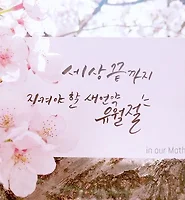 세상 끝까지
지켜야 할 새언약
유월절
in our Moth